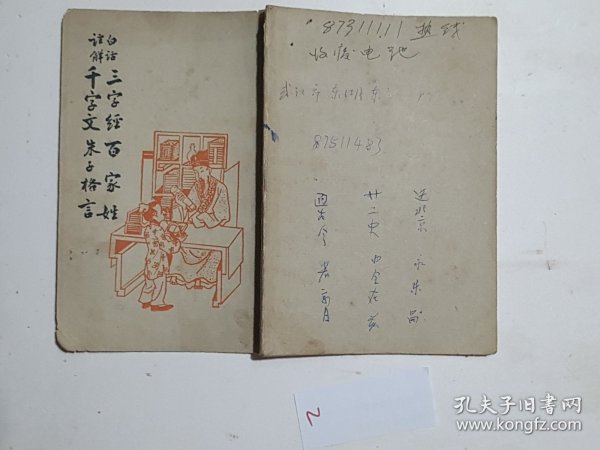 白话
註解
三字经百家姓
千字文朱子格言
87311111 热线
收废电池
武汉市东湖东
87511483
迄北京
廿二史
通古今
2
孔夫子旧书网
www.kongfz.com